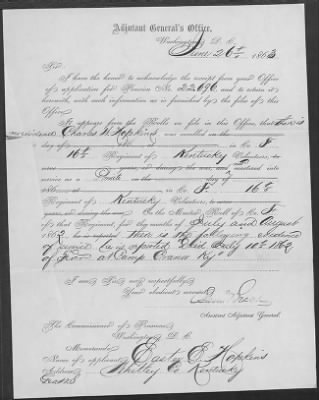 Adjutant General's Office,
Washington, D. C.
June 26th, 1863
Sir:
I have the honor to acknowledge the receipt from your Office
of application for Pension No. 22696, and to return it
herewith, with such information as is furnished by the files of this
Office.
It appears from the Rolls on file in this Office, that there is
evidence Charles W. Hopkins was enrolled on the
day of at in Co. F,
16th Regiment of Kentucky Volunteers, to
serve years, or during the war, and mustered into
service as a Private on the day of
at in Co. F, 16th
Regiment of Kentucky Volunteers, to serve
years, or during the war. On the Muster Roll of Co. F
of that Regiment, for the months of July and August
1862, he is reported There is the following evidence
of service he is reported "Died July 10th 1862
of at Camp Ky"
I am, Sir, very respectfully,
Your obedient servant,
Assistant Adjutant General.
The Commissioner of Pensions,
Washington, D. C.
Memoranda:
Name of applicant, Easter E. Hopkins
Address, Whitley Co. Kentucky